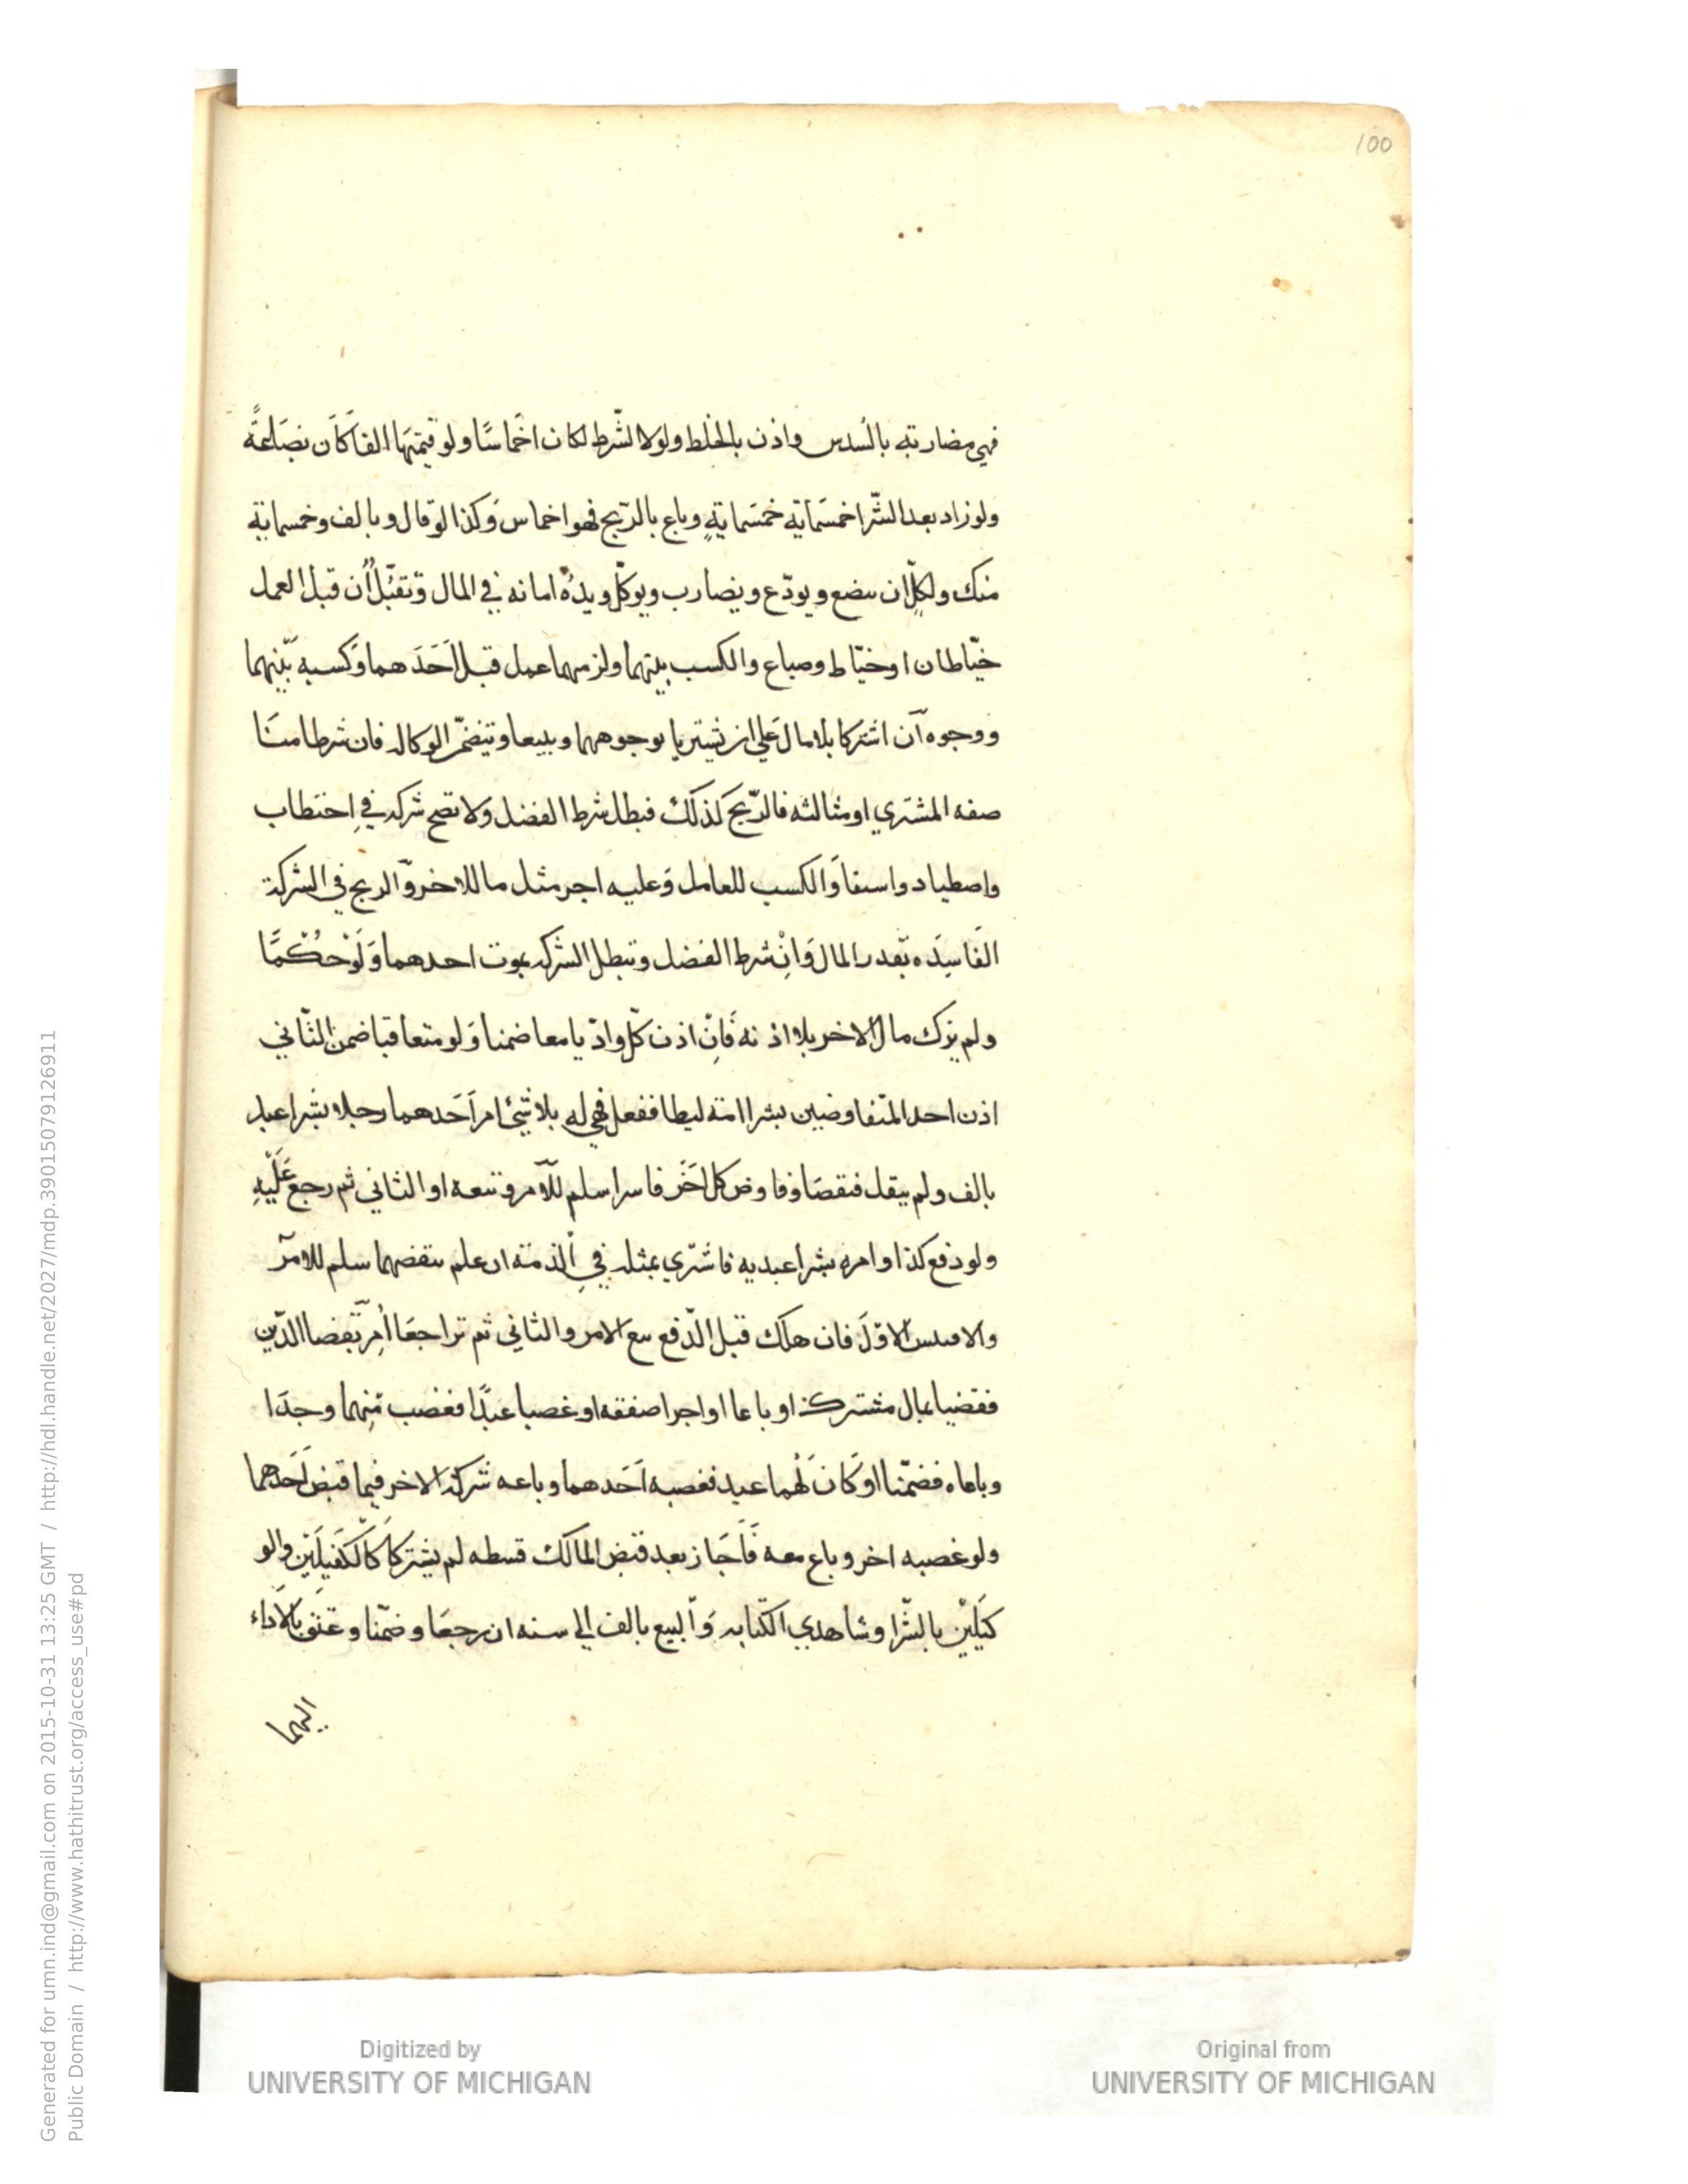 100
فهي مضاربة بالسدس واذن بالخلط ولولا الشّرط لكان اخماسًا ولو قيمتها الفا كان بضاعةً
ولو زاد بعد الشّرا خمسماية خمسمايةٍ وباع بالرّبح فهو اخماس وكذا لو قال وبالف وخمسماية
منك ولكلّ ان يبضع ويودّع ويضارب ويوكّل ويدهُ امانه في المال وتقبّل أن قبل العمل
خيّاطان او خيّاط وصباع والكسب بينهما ولزمهما عمل قبل اَحَدَهما وكسبه بينهما
ووجوه آن اشتركا بلا مال علي ان يشتريا بوجوههما ويبيعا وتتضمّن الوكاله فان شرطا منا
صفه المشتري او مثالثه فالرّبح كذلك فبطل شرط الفضل ولا تصح شركه في احتطاب
واصطياد واستقا والكسب للعامل وعليه اجر مثل ما للاخر والربح في الشركة
الفَاسِدَه بقدر المال وَاِنْ شرط الفضل وتبطل الشركه بموت احدهما وَلَوْ حُكْمًا
ولم يزك مال الاخر بلا اذنه فَاِنّ اذن كلّ وادّيا معا ضمنا وَلو متعاقبا ضمن الثّاني
اذن احد المتفاوضين بشرا امته ليطا ففعل فهي له بلا شئ امر اَحَدهما رجلا بشرا عبد
بالف ولم يقل فنقضا وفاوض كل اخَر فاسرا سلم للآمر وتبعه او الثاني ثم رجع عَلَيْهِ
ولو دفع كذا وامره بشرا عبديه فاشتري بمثله في الذمة ان علم بنقضهما سلم للامر
والا الاوّل فان هلك قبل الدّفع الامر والثاني ثم تراجعا اُمِرَ بقضا الدّين
فقضيا بمال مشترك او باعا او اجرا صفقه او غصبا عبدًا فغصب منهما وجدَا
وباعاه فضمّنا او كَانَ لَهُما عبد فغصبه اَحَدهما وباعه شركه الاخر فيما قبض اَحَدهما
ولو غصبه اخر وباع معه فَاَجَاز بعد قبض المالك قسطه لم يشتركا كَالكَفيلَيْن والو
كيَليْن بالشّرا وشاهدي الكتابه وَالبيع بالف الي سنه ان رجعَا وضمّنا وعتق بالاَداء
اليهما
Generated for umn.ind@gmail.com on 2015-10-31 13:25 GMT / http://hdl.handle.net/2027/mdp.39015079126911
Public Domain / http://www.hathitrust.org/access_use#pd
Digitized by
UNIVERSITY OF MICHIGAN
Original from
UNIVERSITY OF MICHIGAN